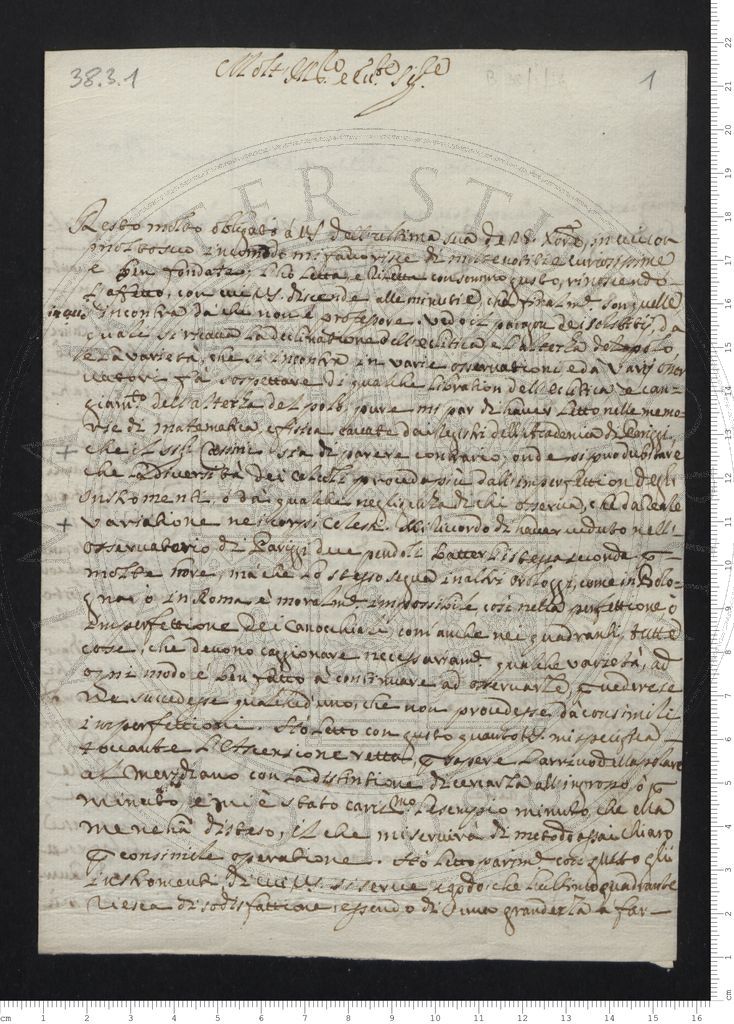 38.3.1
1
Molt Ill.e e Ecc.mo Sig.re
Resto molto obligato à VS dell'ultima sua de 28 Xbre, in cui con
molto suo incomodo mi favorisce di molte notitie curiosissime
e ben fondate; l'hò letta e riletta con sommo gusto, riuscendo
l'affetto, con cui VS. discende alle minutie, che final.te son quelle
in cui s'incontra da che non è professore. Vedo il paragon de i solstitij, da
quale si ricava la declinatione dell'eclitica e l'altezza del polo
e la varietà, che si incontra in varie osservationi e da varij osser
vatori fà sospettare di qualche libration dell'eclitica e can-
giam.to dell'altezza del polo, pure mi par di haver letto nelle memo-
rie di matematica e fisica cavate da i registri dell'Accademia di Pariggi
che il Sig.r Cassini sia di parere contrario, onde si può dubitare
che la diversità de i calcoli proceda più dall'imperfettion degli
instromenti, ò da qualche negligenza di chi osserva, che da reale
variatione nei corsi celesti. Mi ricordo di haver veduto nell'
osservatorio di Pariggi due pendoli batter l'istessa seconda p
molte hore, mà che lo stesso segua in altri orologgi, come in Bolo-
gna, ò in Roma è moralm.te impossibile così nella perfettione ò
imperfettione dei canocchiali com'anche nei quadranti, tutte
cose, che devono caggionare necessariam.te qualche varietà, ad
ogni modo è ben fatto à continuare ad osservarle, p vedere se
ne succedesse qualched'uno, che non procedesse da consimili
imperfettioni. Hò letto con gusto quanto VS. mi specifica
toccante l'Ascensione retta, p sapere l'arrivo della polare
al Meridiano con la distintione di cercarla all'ingrosso, ò p
minuto, e mi è stato cariss.mo l'esempio minuto, che ella
me ne hà disteso, il che mi servirà di metodo assai chiaro
p consimile operatione. Hò letto parim.te con gusto gli
instromenti di cui VS. si serve, e godo, che l'ultimo quadrante
riesca di sodisfattione, essendo di una grandezza à far-